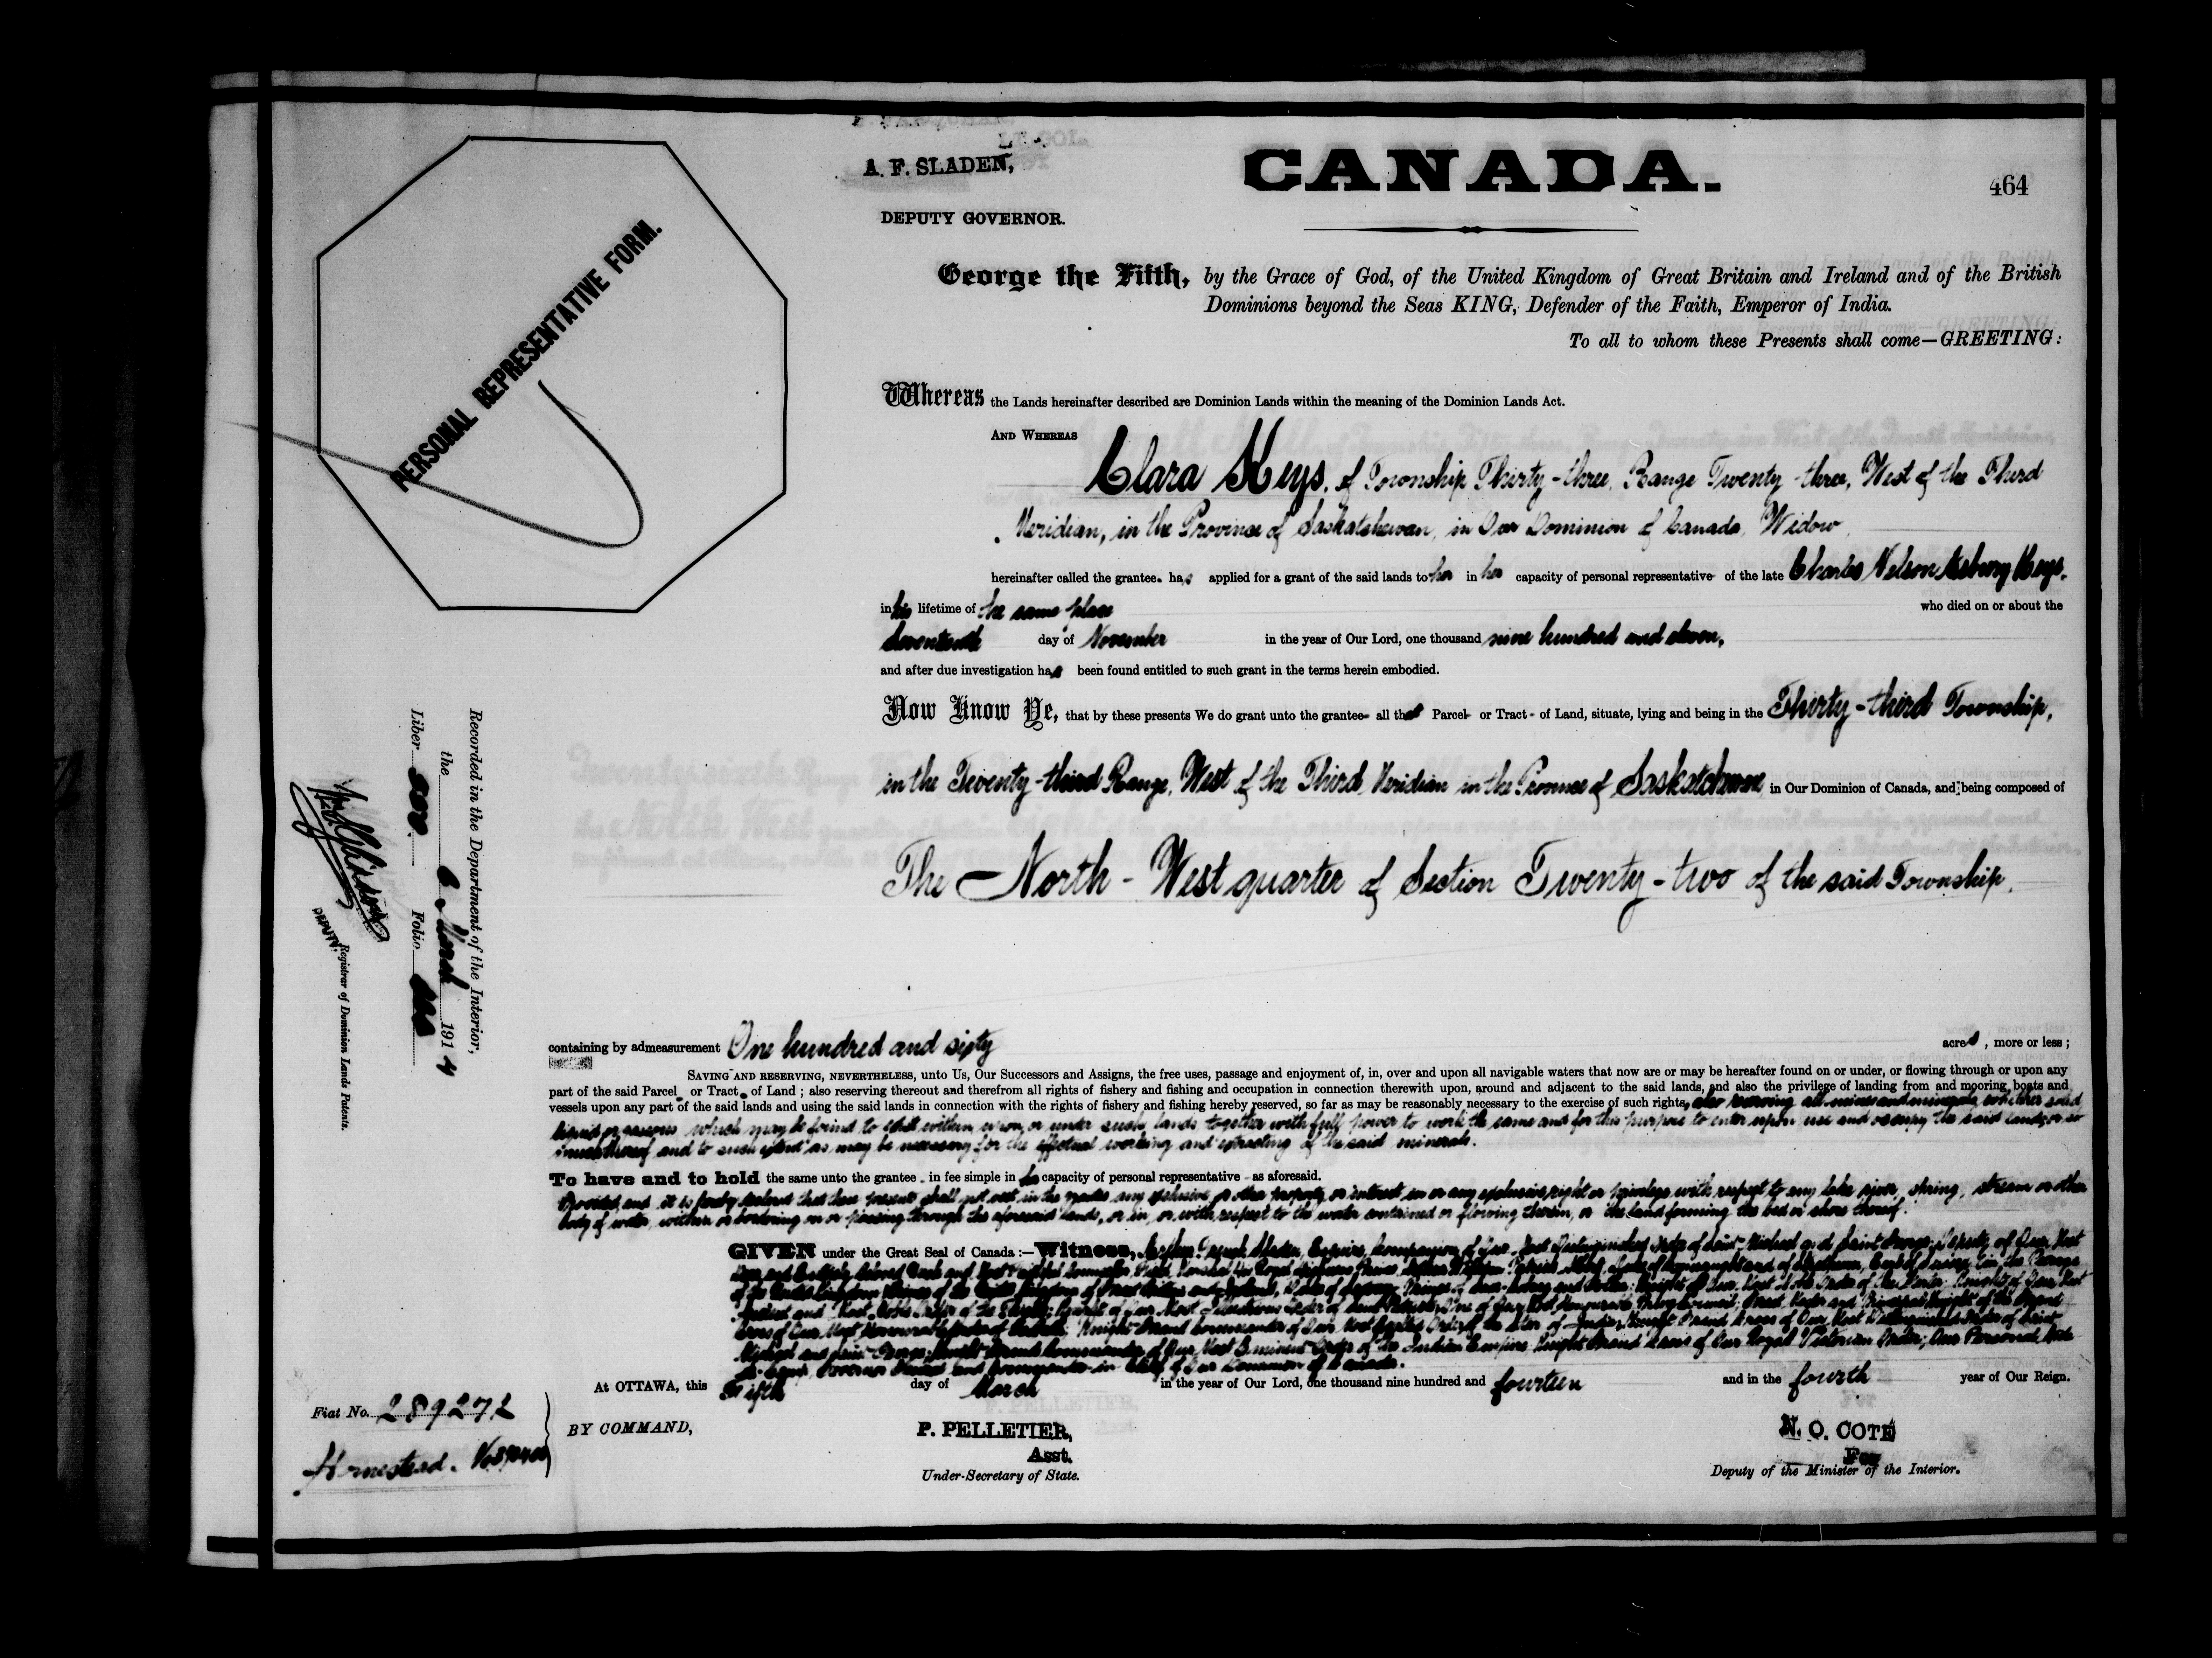 A. F. SLADEN,
DEPUTY GOVERNOR.
CANADA.
464
George the Fifth, by the Grace of God, of the United Kingdom of Great Britain and Ireland and of the British
Dominions beyond the Seas KING, Defender of the Faith, Emperor of India.
To all to whom these Presents shall come—GREETING:
PERSONAL REPRESENTATIVE FORM.
Whereas the Lands hereinafter described are Dominion Lands within the meaning of the Dominion Lands Act.
AND WHEREAS
Clara Keys, of Township Thirty-three, Range Twenty-three, West of the Third
Meridian, in the Province of Saskatchewan, in Our Dominion of Canada, Widow,
hereinafter called the grantee has applied for a grant of the said lands to her in her capacity of personal representative of the late Charles Nelson Asbury Keys,
in his lifetime of the same place who died on or about the
seventeenth day of November in the year of Our Lord, one thousand nine hundred and eleven,
and after due investigation has been found entitled to such grant in the terms herein embodied.
Now Know Ye, that by these presents We do grant unto the grantee all that Parcel or Tract of Land, situate, lying and being in the Thirty-third Township,
in the Twenty-third Range, West of the Third Meridian in the Province of Saskatchewan in Our Dominion of Canada, and being composed of
The North-West quarter of Section Twenty-two of the said Township.
Recorded in the Department of the Interior,
the 6 March 1914
Liber Folio
DEPUTY Registrar of Dominion Lands Patents.
containing by admeasurement One hundred and sixty acres, more or less;
SAVING AND RESERVING, NEVERTHELESS, unto Us, Our Successors and Assigns, the free uses, passage and enjoyment of, in, over and upon all navigable waters that now are or may be hereafter found on or under, or flowing through or upon any
part of the said Parcel or Tract of Land; also reserving thereout and therefrom all rights of fishery and fishing and occupation in connection therewith upon, around and adjacent to the said lands, and also the privilege of landing from and mooring boats and
vessels upon any part of the said lands and using the said lands in connection with the rights of fishery and fishing hereby reserved, so far as may be reasonably necessary to the exercise of such rights, also reserving all mines and minerals whether solid
liquid or gaseous which may be found to exist within, upon, or under such lands together with full power to work the same and for this purpose to enter upon use and occupy the said lands or so
much thereof and to such extent as may be necessary for the effectual working and extracting of the said minerals.
To have and to hold the same unto the grantee in fee simple in her capacity of personal representative as aforesaid.
Provided and it is hereby declared that these presents shall not vest in the grantee any exclusive or other property or interest in or any exclusive right or privilege with respect to any lake river, spring, stream or other
body of water, within or bordering on or passing through the aforesaid lands, or in, or with respect to the water contained or flowing therein, or the land forming the bed or shore thereof.
GIVEN under the Great Seal of Canada:—Witness, Arthur French Sladen, Esquire, Companion of Our Most Distinguished Order of Saint Michael and Saint George, Deputy of Our Most
At OTTAWA, this Fifth day of March in the year of Our Lord, one thousand nine hundred and fourteen and in the fourth year of Our Reign.
Fiat No. 289272
Homestead.
BY COMMAND,
P. PELLETIER,
Asst.
Under-Secretary of State.
N. O. COTE
For
Deputy of the Minister of the Interior.